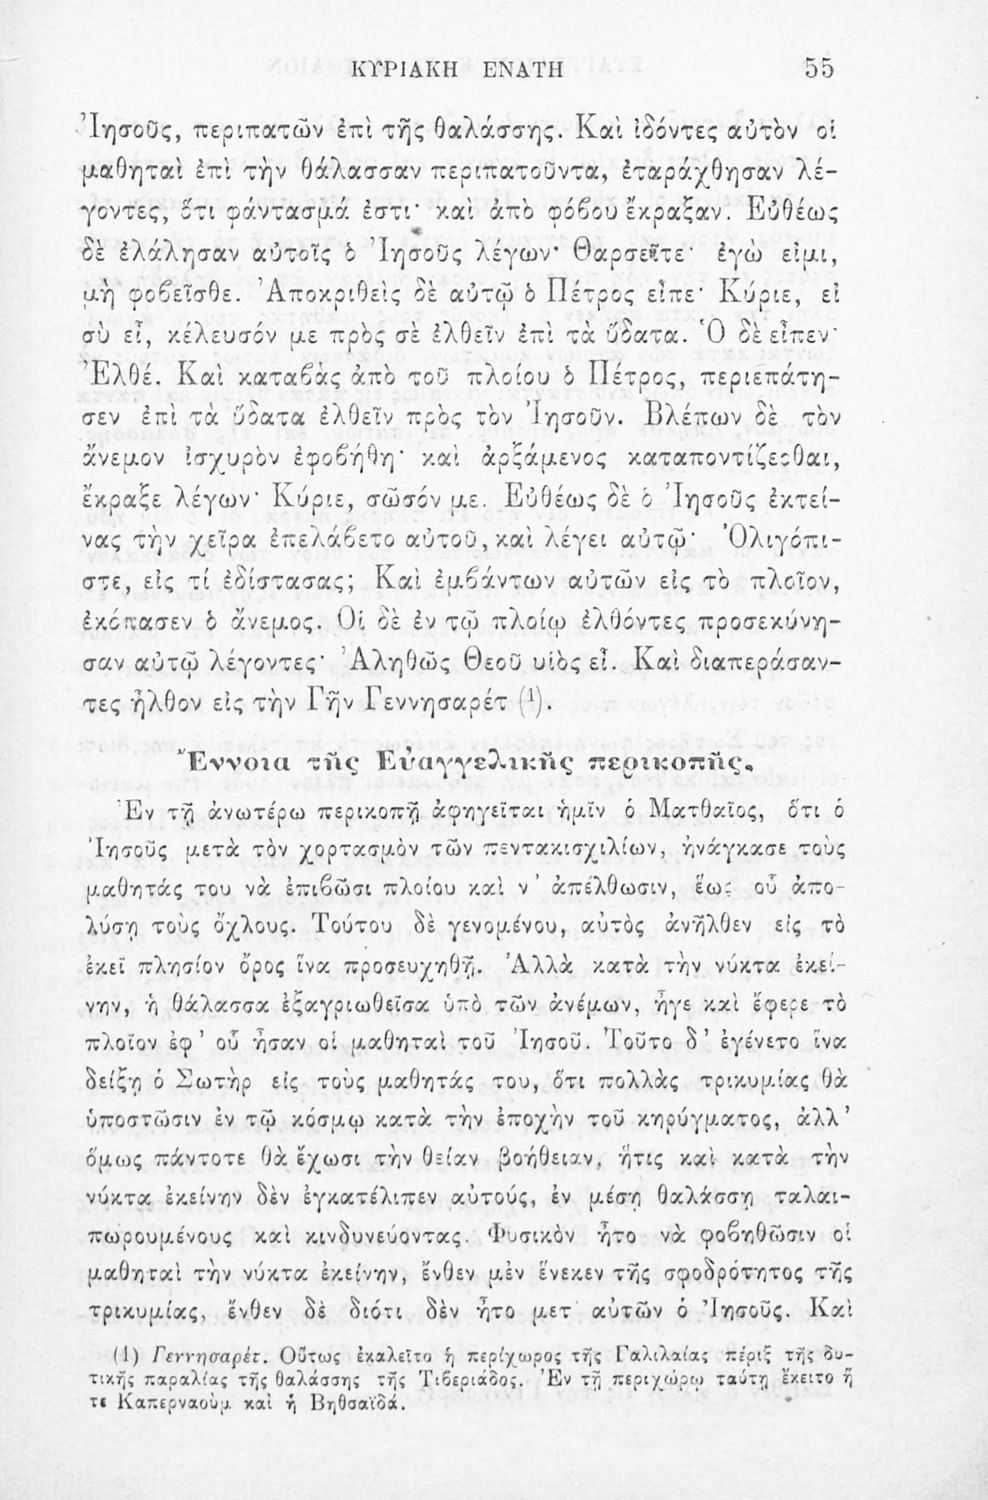 ΚΥΡΙΑΚΗ ΕΝΑΤΗ 55
Ἰησοῦς, περιπατῶν ἐπὶ τῆς θαλάσσης. Καὶ ἰδόντες αὐτὸν οἱ
μαθηταὶ ἐπὶ τὴν θάλασσαν περιπατοῦντα, ἐταράχθησαν λέ-
γοντες, ὅτι φάντασμά ἐστι· καὶ ἀπὸ φόβου ἔκραξαν. Εὐθέως
δὲ ἐλάλησαν αὐτοῖς ὁ Ἰησοῦς λέγων· Θαρσεῖτε· ἐγώ εἰμι,
μὴ φοβεῖσθε. Ἀποκριθεὶς δὲ αὐτῷ ὁ Πέτρος εἶπε· Κύριε, εἰ
σὺ εἶ, κέλευσόν με πρὸς σὲ ἐλθεῖν ἐπὶ τὰ ὕδατα. Ὁ δὲ εἶπεν·
Ἐλθέ. Καὶ καταβὰς ἀπὸ τοῦ πλοίου ὁ Πέτρος, περιεπάτη-
σεν ἐπὶ τὰ ὕδατα ἐλθεῖν πρὸς τὸν Ἰησοῦν. Βλέπων δὲ τὸν
ἄνεμον ἰσχυρὸν ἐφοβήθη· καὶ ἀρξάμενος καταποντίζεσθαι,
ἔκραξε λέγων· Κύριε, σῶσόν με. Εὐθέως δὲ ὁ Ἰησοῦς ἐκτεί-
νας τὴν χεῖρα ἐπελάβετο αὐτοῦ, καὶ λέγει αὐτῷ· Ὀλιγόπι-
στε, εἰς τί ἐδίστασας; Καὶ ἐμβάντων αὐτῶν εἰς τὸ πλοῖον,
ἐκόπασεν ὁ ἄνεμος. Οἱ δὲ ἐν τῷ πλοίῳ ἐλθόντες προσεκύνη-
σαν αὐτῷ λέγοντες· Ἀληθῶς Θεοῦ υἱὸς εἶ. Καὶ διαπεράσαν-
τες ἦλθον εἰς τὴν Γῆν Γεννησαρέτ (1).
Ἔννοια τῆς Εὐαγγελικῆς περικοπῆς.
Ἐν τῇ ἀνωτέρω περικοπῇ ἀφηγεῖται ἡμῖν ὁ Ματθαῖος, ὅτι ὁ
Ἰησοῦς μετὰ τὸν χορτασμὸν τῶν πεντακισχιλίων, ἠνάγκασε τοὺς
μαθητάς του νὰ ἐπιβῶσι πλοίου καὶ ν' ἀπέλθωσιν, ἕως οὗ ἀπο-
λύσῃ τοὺς ὄχλους. Τούτου δὲ γενομένου, αὐτὸς ἀνῆλθεν εἰς τὸ
ἐκεῖ πλησίον ὄρος ἵνα προσευχηθῇ. Ἀλλὰ κατὰ τὴν νύκτα ἐκεί-
νην, ἡ θάλασσα ἐξαγριωθεῖσα ὑπὸ τῶν ἀνέμων, ἦγε καὶ ἔφερε τὸ
πλοῖον ἐφ' οὗ ἦσαν οἱ μαθηταὶ τοῦ Ἰησοῦ. Τοῦτο δ' ἐγένετο ἵνα
δείξῃ ὁ Σωτὴρ εἰς τοὺς μαθητάς του, ὅτι πολλὰς τρικυμίας θὰ
ὑποστῶσιν ἐν τῷ κόσμῳ κατὰ τὴν ἐποχὴν τοῦ κηρύγματος, ἀλλ'
ὅμως πάντοτε θὰ ἔχωσι τὴν θείαν βοήθειαν, ἥτις καὶ κατὰ τὴν
νύκτα ἐκείνην δὲν ἐγκατέλιπεν αὐτούς, ἐν μέσῃ θαλάσσῃ ταλαι-
πωρουμένους καὶ κινδυνεύοντας. Φυσικὸν ἦτο νὰ φοβηθῶσιν οἱ
μαθηταὶ τὴν νύκτα ἐκείνην, ἔνθεν μὲν ἕνεκεν τῆς σφοδρότητος τῆς
τρικυμίας, ἔνθεν δὲ διότι δὲν ἦτο μετ' αὐτῶν ὁ Ἰησοῦς. Καὶ
(1) Γεννησαρέτ. Οὕτως ἐκαλεῖτο ἡ περίχωρος τῆς Γαλιλαίας πέριξ τῆς δυ-
τικῆς παραλίας τῆς θαλάσσης τῆς Τιβεριάδος. Ἐν τῇ περιχώρῳ ταύτῃ ἔκειτο ἥ
τε Καπερναοὺμ καὶ ἡ Βηθσαϊδά.